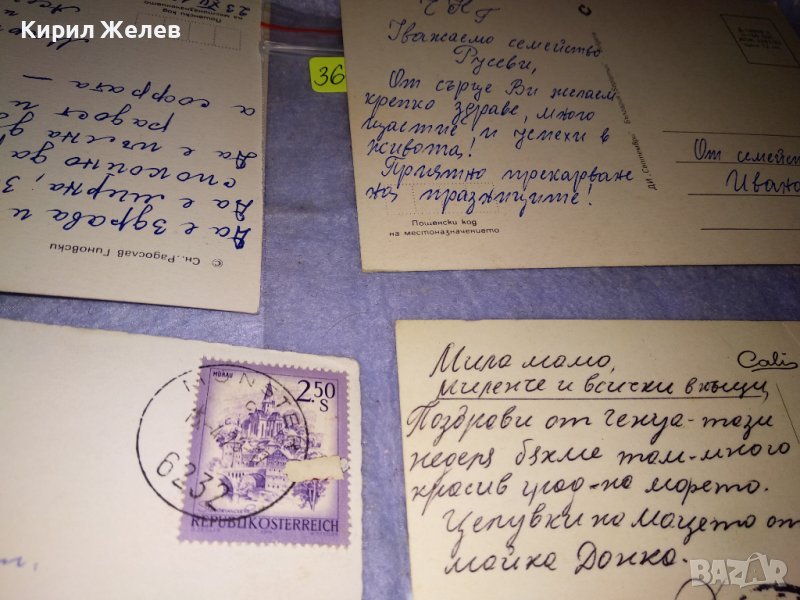 Кирил Желев
23 XII
на местоназначението
Пощенски код
а софрата –
радост и
Да е пълна
спокойно да
Да е мирна,
Да е здрава и
© Сн. Радослав Гиновски
36
ЧНГ
Уважаемо семейство
Русеви,
От сърце Ви желаем
крепко здраве, много
щастие и успехи в
живота!
Приятно прекарване
на празниците!
Пощенски код
на местоназначението
ДИ „Септември"
От семейст
Ивано
MURAU
2.50
S
MÜNSTER
6232
REPUBLIK ÖSTERREICH
Мила мамо,
Миленче и всички вкъщи,
Поздрави от Генуа - тази
неделя бяхме там - много
красив град - на морето.
Целувки на Мацето от
майка Донка.
BAZAR